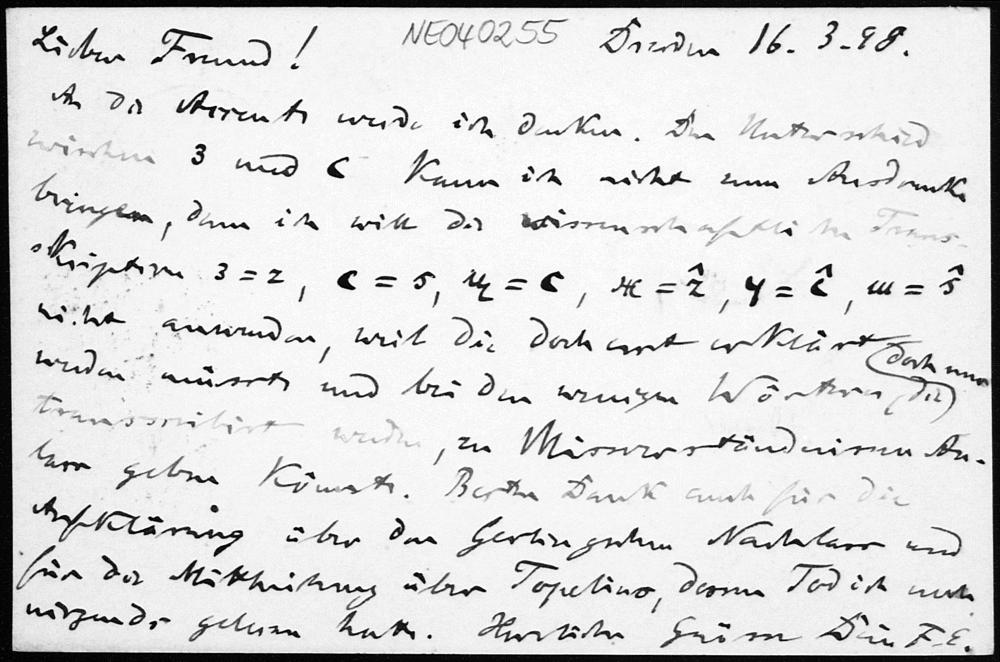 Lieber Freund! NE040255 Dresden 16. 3. 98.
An die Accente werde ich denken. Den Unterschied
zwischen З und С kann ich nicht zum Ausdrucke
bringen, denn ich will die wissenschaftliche Trans-
skription З = z, С = s, Ц = c, Ж = ẑ, Ч = ĉ, Ш = ŝ
nicht anwenden, weil die doch erst erklärt
werden müsste und bei den wenigen Wörtern, (die doch nur)
transscribirt werden, zu Missverständnissen An-
lass geben könnte. Besten Dank auch für die
Aufklärung über den Gerlingschen Nachlass und
für die Mittheilung über Topelius, dessen Tod ich noch
nirgends gelesen hatte. Herzliche Grüsse Dein F. E.